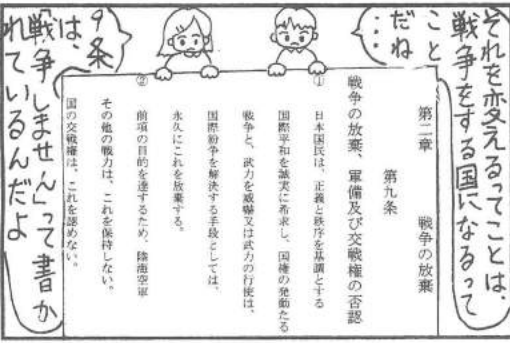 それを変えるってことは、
戦争をする国になるって
ことだね
・・・
第二章　戦争の放棄
第九条
戦争の放棄、軍備及び交戦権の否認
① 日本国民は、正義と秩序を基調とする
国際平和を誠実に希求し、国権の発動たる
戦争と、武力を威嚇又は武力の行使は、
国際紛争を解決する手段としては、
永久にこれを放棄する。
② 前項の目的を達するため、陸海空軍
その他の戦力は、これを保持しない。
国の交戦権は、これを認めない。
9条
は、
「戦争しません」って書か
れているんだよ